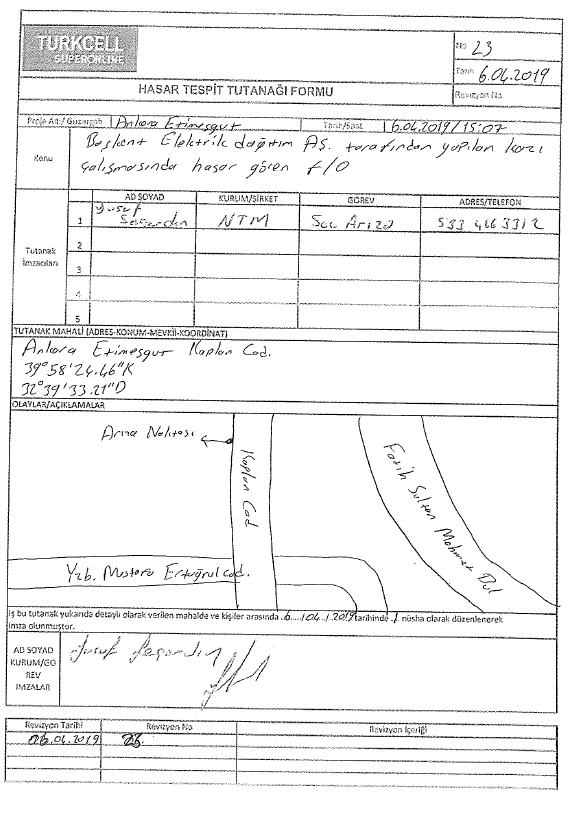 TURKCELL
SUPERONLINE
No 23
Tarih 6.04.2019
Revizyon No
HASAR TESPİT TUTANAĞI FORMU
Proje Adı / Güzergah Ankara Etimesgut Tarih/Saat 6.04.2019/15:07
Konu Başkent Elektrik dağıtım AŞ. tarafından yapılan kazı
çalışmasında hasar gören f/O
AD SOYAD KURUM/ŞİRKET GÖREV ADRES/TELEFON
1 Yusuf NTM Arıza 533 466 3312
2
Tutanak İmzacıları
3
4
5
TUTANAK MAHALİ (ADRES-KONUM-MEVKİİ-KOORDİNAT)
Ankara Etimesgut Kaplan Cad.
39°58'24.46"K
32°39'33.21"D
OLAYLAR/AÇIKLAMALAR
Arıza Noktası
Kaplan Cad
Fatih Sultan Mehmet Bul
Yzb. Mustafa Ertuğrul cad.
İş bu tutanak yukarıda detaylı olarak verilen mahalde ve kişiler arasında 6../04./2019 tarihinde 1 nüsha olarak düzenlenerek
imza olunmuştur.
AD SOYAD
KURUM/GÖ
REV
İMZALAR
Yusuf
Revizyon Tarihi Revizyon No Revizyon İçeriği
06.04.2019 23.